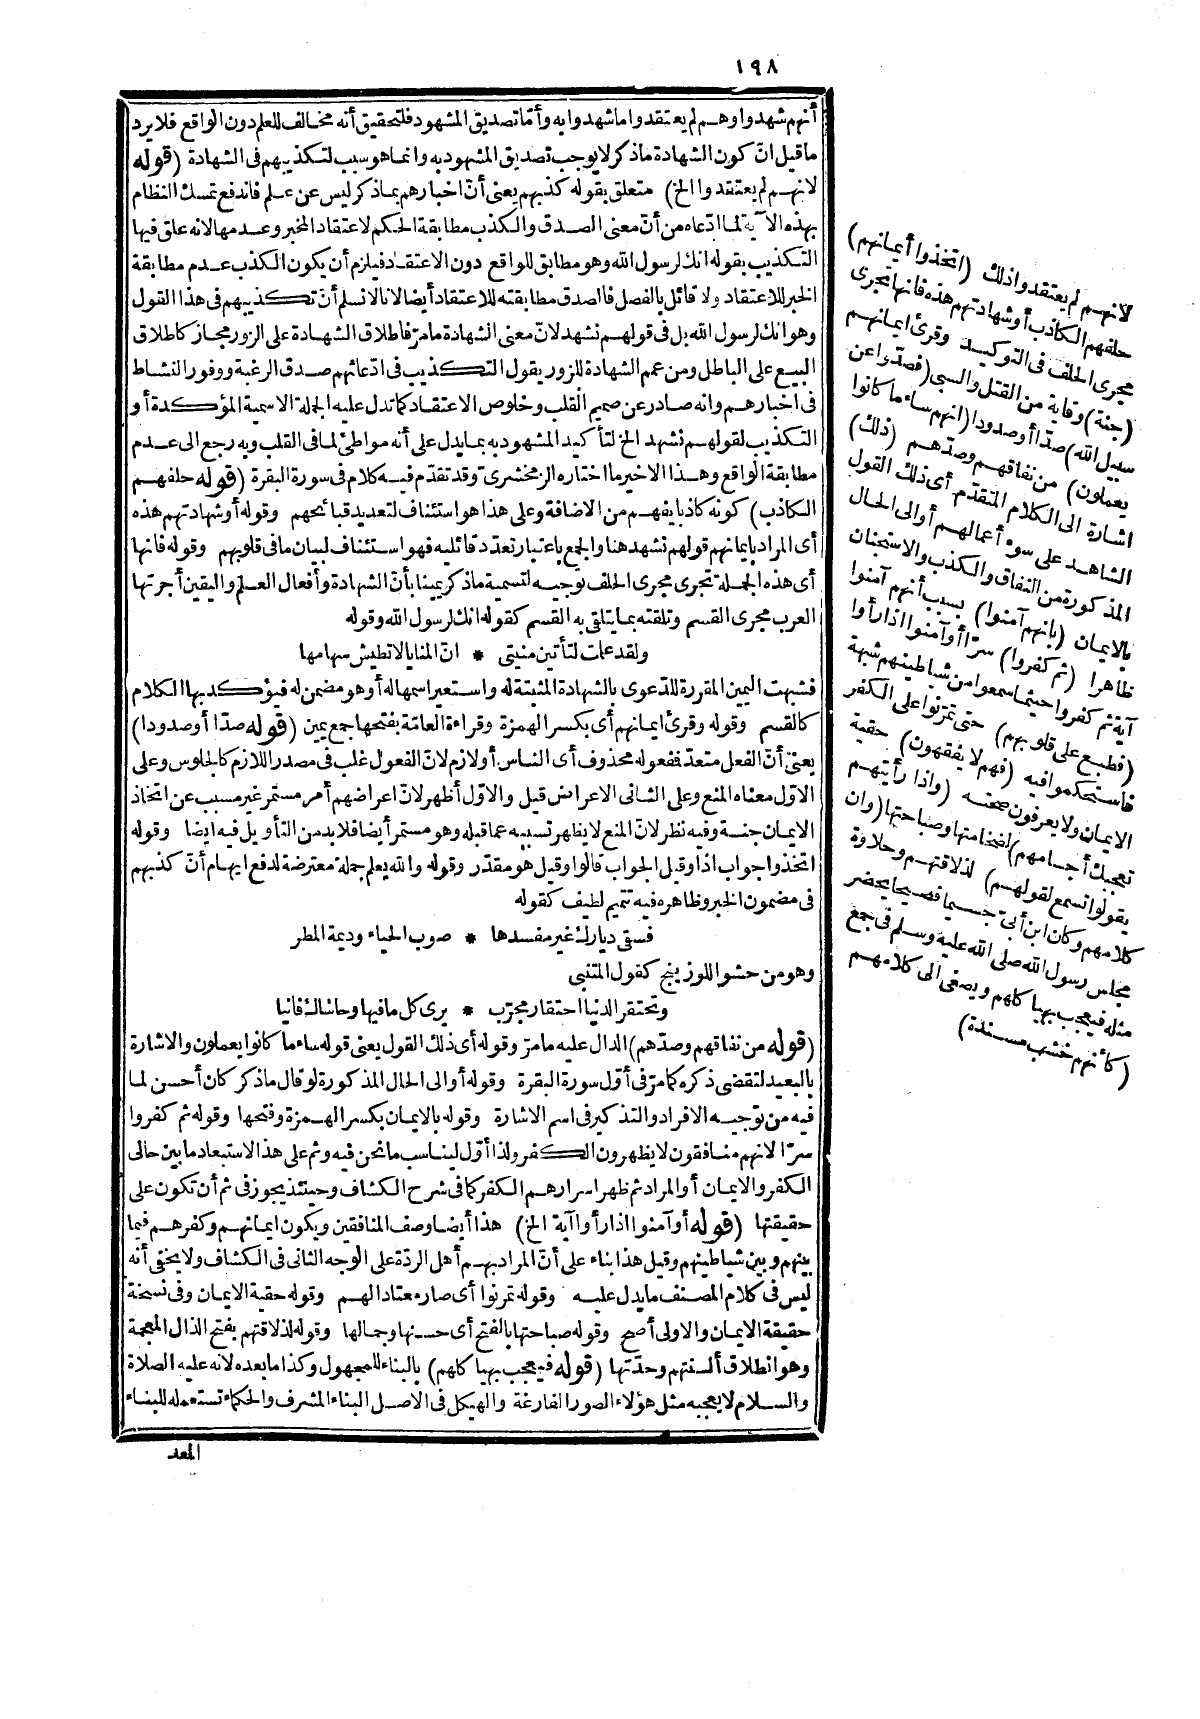 ١٩٨
أنهم شهدوا وهم لم يعتقدوا ما شهدوا به وأمّا تصديق المشهود فلتحقيق أنه مخالف للعلم دون الواقع فلا يرد
ما قيل انّ كون الشهادة ماذكر لا يوجب تصديق المشهود به وانما هو سبب لتكذيبهم فى الشهادة (قوله
لانهم لم يعتقدوا الخ) متعلق بقوله كذبهم يعنى أنّ اخبارهم بماذكر ليس عن علم فاندفع تمسك النظام
بهذه الآية لما ادّعاه من أنّ معنى الصدق والكذب مطابقة الحكم لاعتقاد المخبر وعدمها لانه علق فيها
التكذيب بقوله انك لرسول الله وهو مطابق للواقع دون الاعتقاد فيلزم أن يكون الكذب عدم مطابقة
الخبر للاعتقاد ولا قائل بالفصل فالصدق مطابقته للاعتقاد أيضا لانا لانسلم أنّ تكذيبهم فى هذا القول
وهو انك لرسول الله بل فى قولهم نشهد لانّ معنى الشهادة مامرّ فاطلاق الشهادة على الزور مجاز كاطلاق
البيع على الباطل ومن عمم الشهادة للزور يقول التكذيب فى ادّعائهم صدق الرغبة ووفور النشاط
فى اخبارهم وانه صادر عن صميم القلب وخلوص الاعتقاد كما تدل عليه الجملة الاسمية المؤكدة أو
التكذيب لقولهم نشهد الخ لتأكيد المشهود به بما يدل على أنه مواطئ لما فى القلب وبه رجع الى عدم
مطابقة الواقع وهذا الاخير ما اختاره الزمخشرى وقد تقدّم فيه كلام فى سورة البقرة (قوله حلفهم
الكاذب) كونه كاذبا يفهم من الاضافة وعلى هذا هو استئناف لتعديد قبائحهم وقوله أو شهادتهم هذه
أى المراد بايمانهم قولهم نشهد هنا والجمع باعتبار تعدّد قائليه فهو استئناف لبيان مافى قلوبهم وقوله فانها
أى هذه الجملة تجرى مجرى الحلف توجيه لتسمية ماذكر يمينا بأنّ الشهادة وأفعال العلم واليقين أجرتها
العرب مجرى القسم وتلقته بما يتلقى به القسم كقوله انك لرسول الله وقوله
ولقد علمت لتأتين منيتى * انّ المنايا لا تطيش سهامها
فشبهت اليمين المقررة للدّعوى بالشهادة المثبتة له واستعير اسمها له أو هو مضمن له فيؤكد بها الكلام
كالقسم وقوله وقرئ ايمانهم أى بكسر الهمزة وقراءة العامّة بفتحها جمع يمين (قوله صدّا أو صدودا)
يعنى أنّ الفعل متعدّ فمفعوله محذوف أى الناس أو لازم لانّ الفعول غلب فى مصدر اللازم كالجلوس وعلى
الاوّل معناه المنع وعلى الثانى الاعراض قيل والاوّل أظهر لانّ اعراضهم أمر مستمر غير مسبب عن اتخاذ
الايمان جنة وفيه نظر لانّ المنع لا يظهر تسببه عما قبله وهو مستمر أيضا فلا بد من التأويل فيه ايضا وقوله
اتخذوا جواب اذا وقيل الجواب قالوا وقيل هو مقدّر وقوله والله يعلم جملة معترضة لدفع ايهام أنّ كذبهم
فى مضمون الخبر وظاهره فيه تتميم لطيف كقوله
فسقى ديارك غير مفسدها * صوب الحياء وديمة المطر
وهو من حشو اللوزينج كقول المتنبى
وتحتقر الدنيا احتقار مجرّب * يرى كل ما فيها وحاشاك فانيا
(قوله من نفاقهم وصدّهم) الدال عليه مامرّ وقوله أى ذلك القول يعنى قوله ساء ما كانوا يعملون والاشارة
بالبعيد لتقضى ذكره كما مرّ فى أوّل سورة البقرة وقوله أو الى الحال المذكورة لو قال ماذكر كان أحسن لما
فيه من توجيه الافراد والتذكير فى اسم الاشارة وقوله بالايمان بكسر الهمزة وفتحها وقوله ثم كفروا
سرّا لانهم منافقون لا يظهرون الكفر ولذا أوّل ليناسب ما نحن فيه وثم على هذا الاستبعاد ما بين حالى
الكفر والايمان أو المراد ثم ظهر اسرارهم الكفر كما فى شرح الكشاف وحينئذ يجوز فى ثم أن تكون على
حقيقتها (قوله أو آمنوا اذا رأوا آية الخ) هذا أيضا وصف المنافقين ويكون ايمانهم وكفرهم فيما
بينهم وبين شياطينهم وقيل هذا بناء على أنّ المراد بهم أهل الردّة على الوجه الثانى فى الكشاف ولا يخفى أنه
ليس فى كلام المصنف ما يدل عليه وقوله تمرنوا أى صار معتادا لهم وقوله حقية الايمان وفى نسخة
حقيقة الايمان والاولى أصح وقوله صباحتها بالفتح أى حسنها وجمالها وقوله لذلاقتهم بفتح الذال المعجمة
وهو انطلاق ألسنتهم وحدّتها (قوله فيعجب بهياكلهم) بالبناء للمجهول وكذا ما بعده لانه عليه الصلاة
والسلام لا يعجبه مثل هؤلاء الصور الفارغة والهيكل فى الاصل البناء المشرف والحكماء تستعمله للبناء
المعد
لانهم لم يعتقدوا ذلك (اتخذوا أيمانهم)
حلفهم الكاذب أو شهادتهم هذه فانها تجرى
مجرى الحلف فى التوكيد وقرئ ايمانهم
(جنة) وقاية من القتل والسبى (فصدّوا عن
سبيل الله) صدّا أو صدودا (انهم ساء ما كانوا
يعملون) من نفاقهم وصدّهم (ذلك)
اشارة الى الكلام المتقدّم أى ذلك القول
الشاهد على سوء أعمالهم أو الى الحال
المذكورة من النفاق والكذب والاستجنان
بالايمان (بانهم آمنوا) بسبب أنهم آمنوا
ظاهرا (ثم كفروا) سرّا أو آمنوا اذا رأوا
آية ثم كفروا حيثما سمعوا من شياطينهم شبهة
(فطبع على قلوبهم) حتى تمرّنوا على الكفر
فاستحكموا فيه (فهم لا يفقهون) حقية
الايمان ولا يعرفون صحته (واذا رأيتهم
تعجبك أجسامهم) لضخامتها وصباحتها (وان
يقولوا تسمع لقولهم) لذلاقتهم وحلاوة
كلامهم وكان ابن أبىّ جسيما فصيحا يحضر
مجلس رسول الله صلى الله عليه وسلم فى جمع
مثله فيعجب بهياكلهم ويصغى الى كلامهم
(كأنهم خشب مسندة)